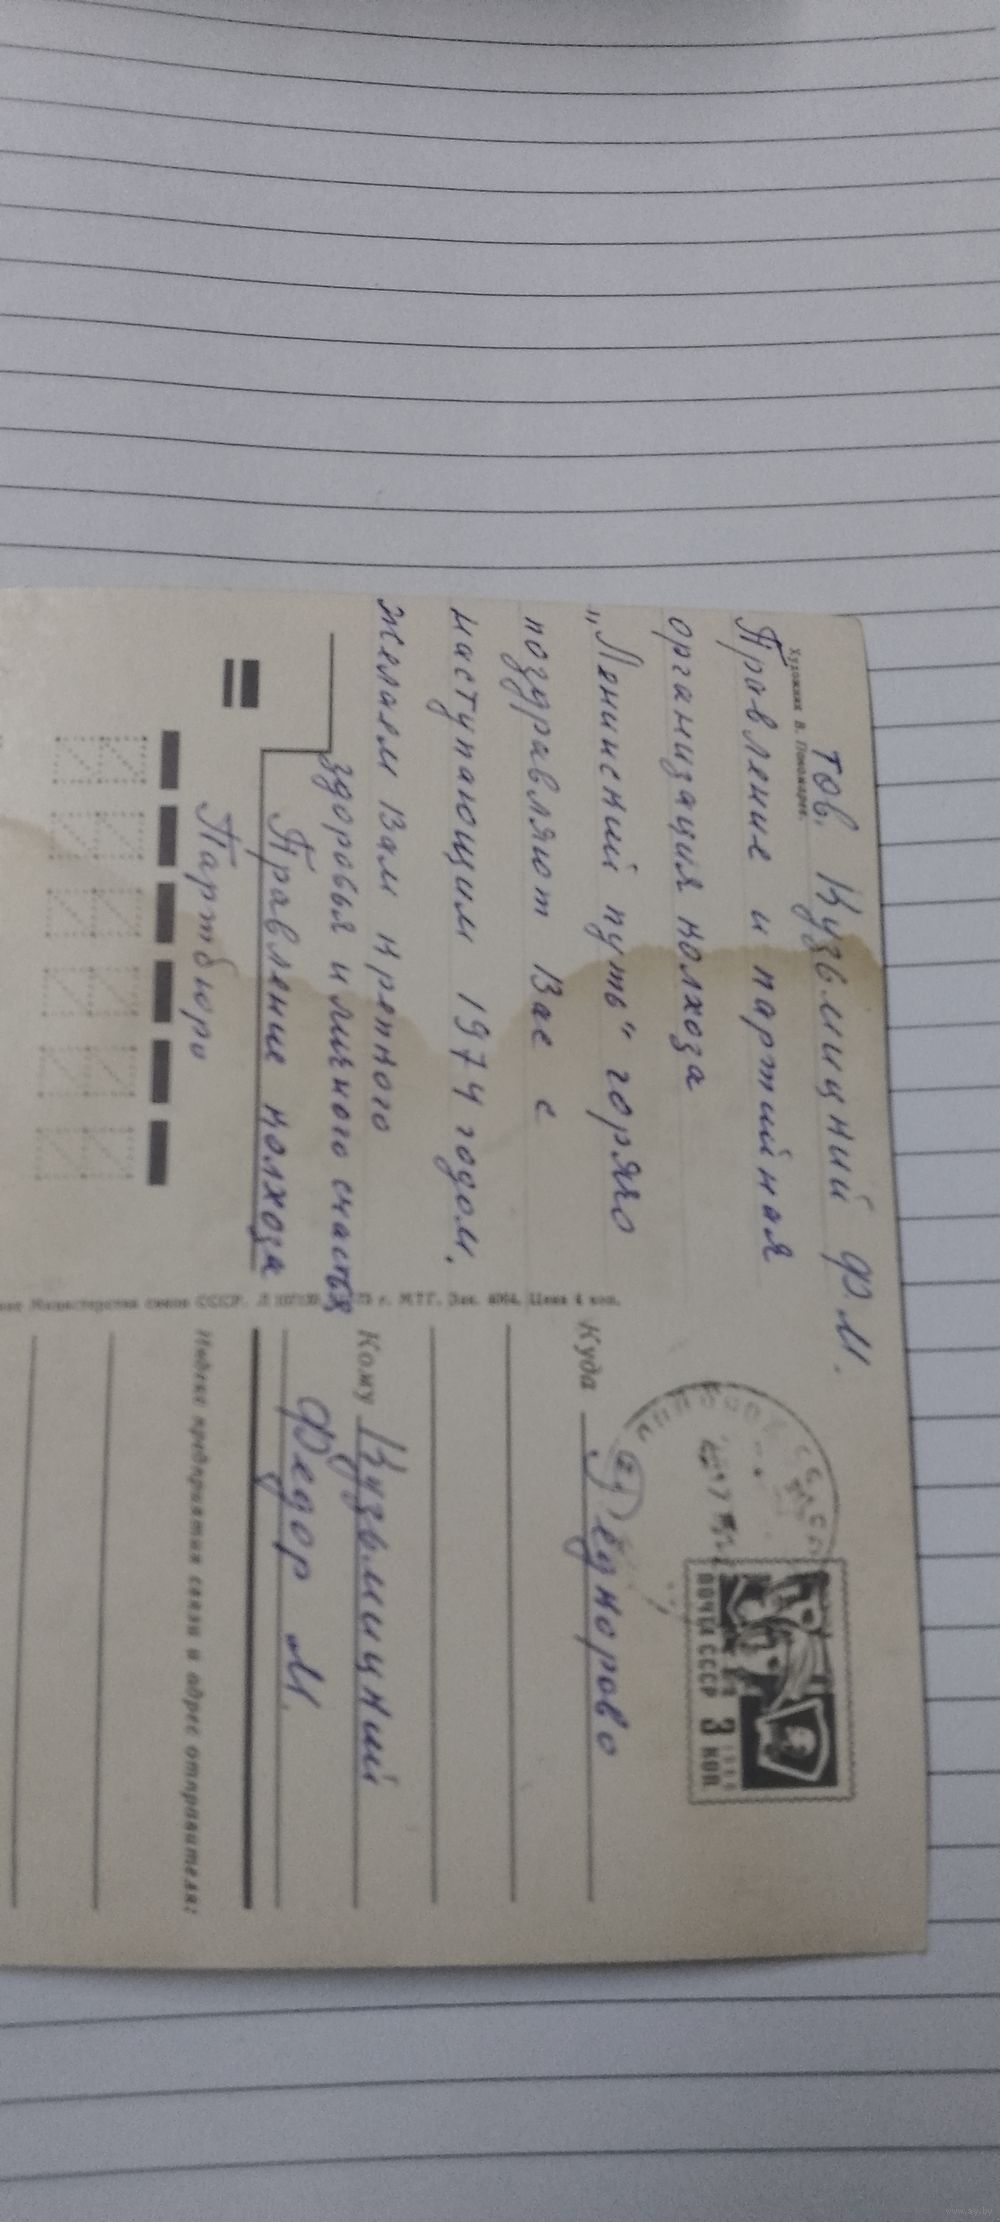 Художник В. Пономарев.
тов. Кузьмицкий Ф М.
Правление и партийная
организация колхоза
„Ленинский путь" горячо
поздравляют Вас с
наступающим 1974 годом.
Желаем Вам крепкого
здоровья и личного счастья
Правление колхоза
Партбюро
Министерства связи СССР. 73 г. МТГ. Зак. 4064. Цена 4 коп.
ПОЧТА СССР 3 КОП
Куда
Кому Кузьмицкий
Федор М.
Индекс предприятия связи и адрес отправителя:
www.ay.by